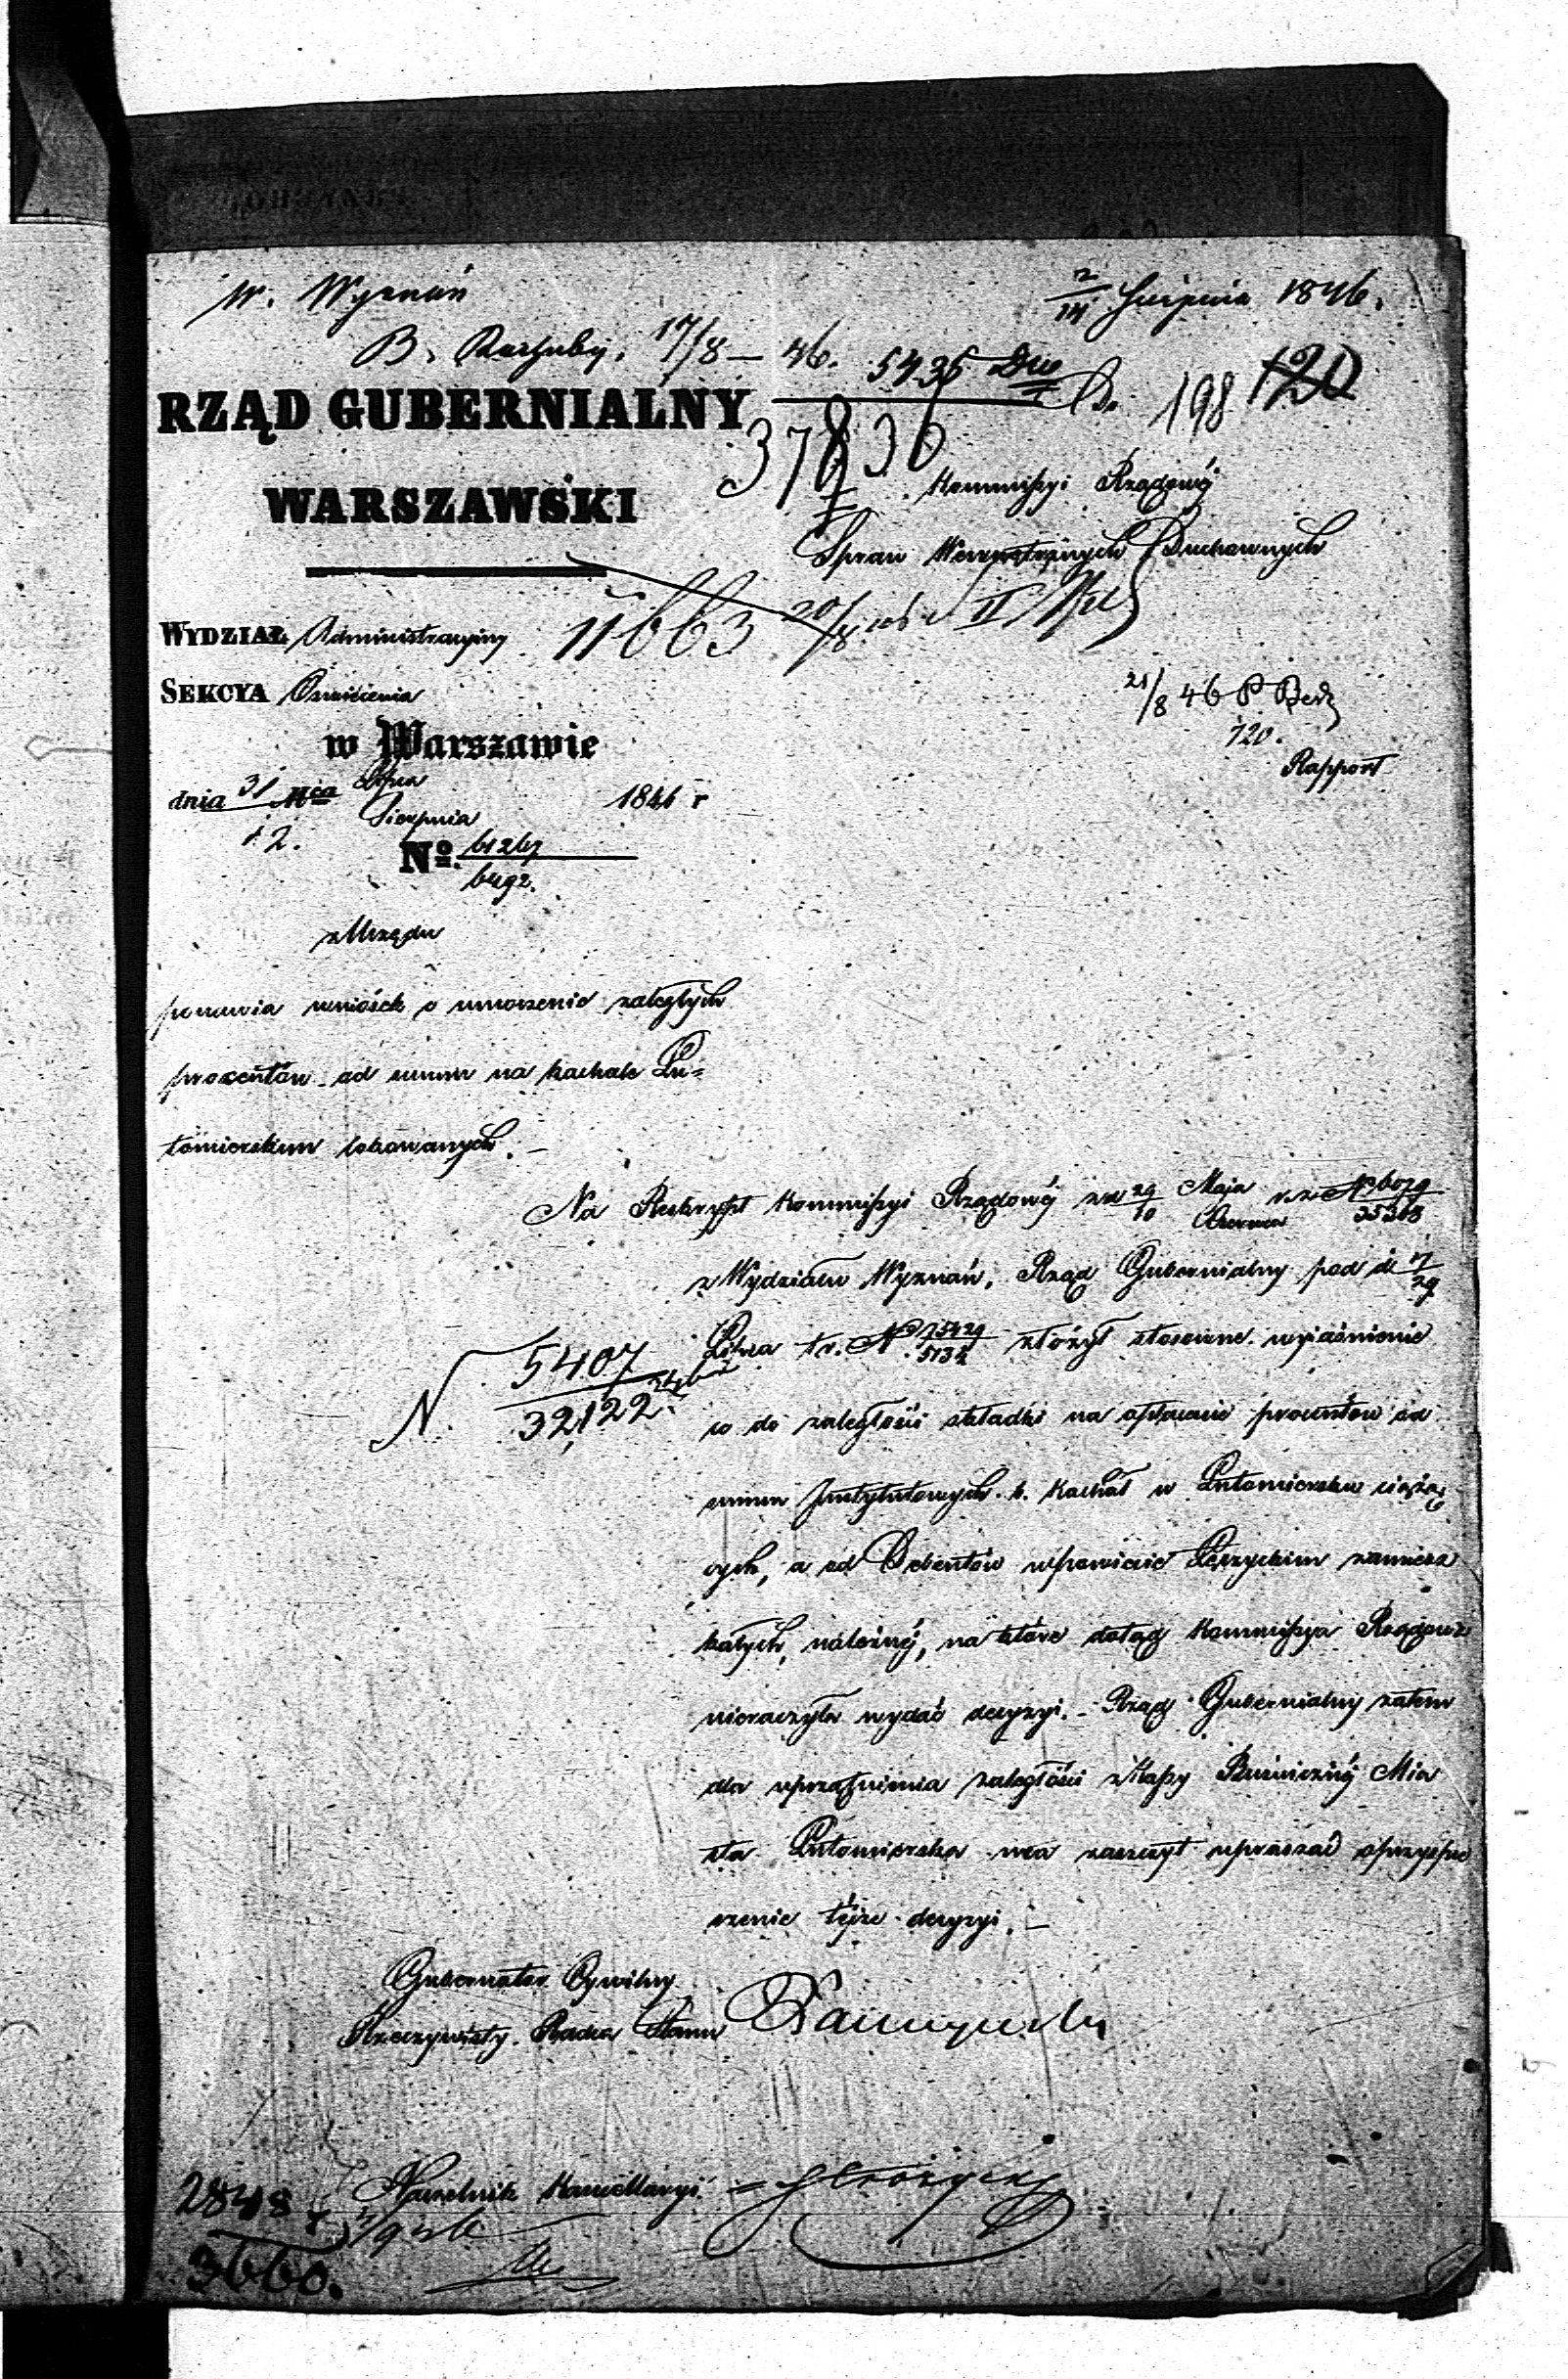 W. Wyznań
2/14 Sierpnia 1846.
B. Rachuby. 17/8 – 46.
5435
198 120
RZĄD GUBERNIALNY
37836
WARSZAWSKI
Kommissyi Rządowéj
Spraw Wewnętrznych Duchownych
WYDZIAŁ Administracyjny
11663 20/8
SEKCYA
21/8 46 P.
w Warszawie
120.
Rapport
dnia 31/12. Mca Lipca/Sierpnia 1846 r
No. 61267/6492.
z Urzędu
ponawia wniosek o umorzenie zaległych
procentów od summ na kachale Lu=
tomierskim lokowanych. –
Na Reskrypt Kommissyi Rządowéj z d 29/10 Maja/Czerwca r. z. No 6079
z Wydziału Wyznań, Rząd Gubernialny pod d. 17/29
Lipca t. r. No 75429 złożył stosowne wyjaśnienie
N. 5407/32,122
co do zaległości składki na opłacanie procentów od
summ Instytutowych b. Kachał w Lutomiersku ciążą
cych, a od Debentów w powiecie Łęczyckim zamiesz
kałych, należnéj, na które dotąd Kommissya Rządowa
nieraczyła wydać decyzyi. – Rząd Gubernialny zatem
dla uprzątnienia zaległości z Kassy Bużnicznéj Mia
sta Lutomierska ma zaszczyt upraszać o przyspie
szenie téjże decyzyi. –
Gubernator Cywilny
Rzeczywisty Radca Stanu
Naczelnik Kancellaryi
2848
3660.